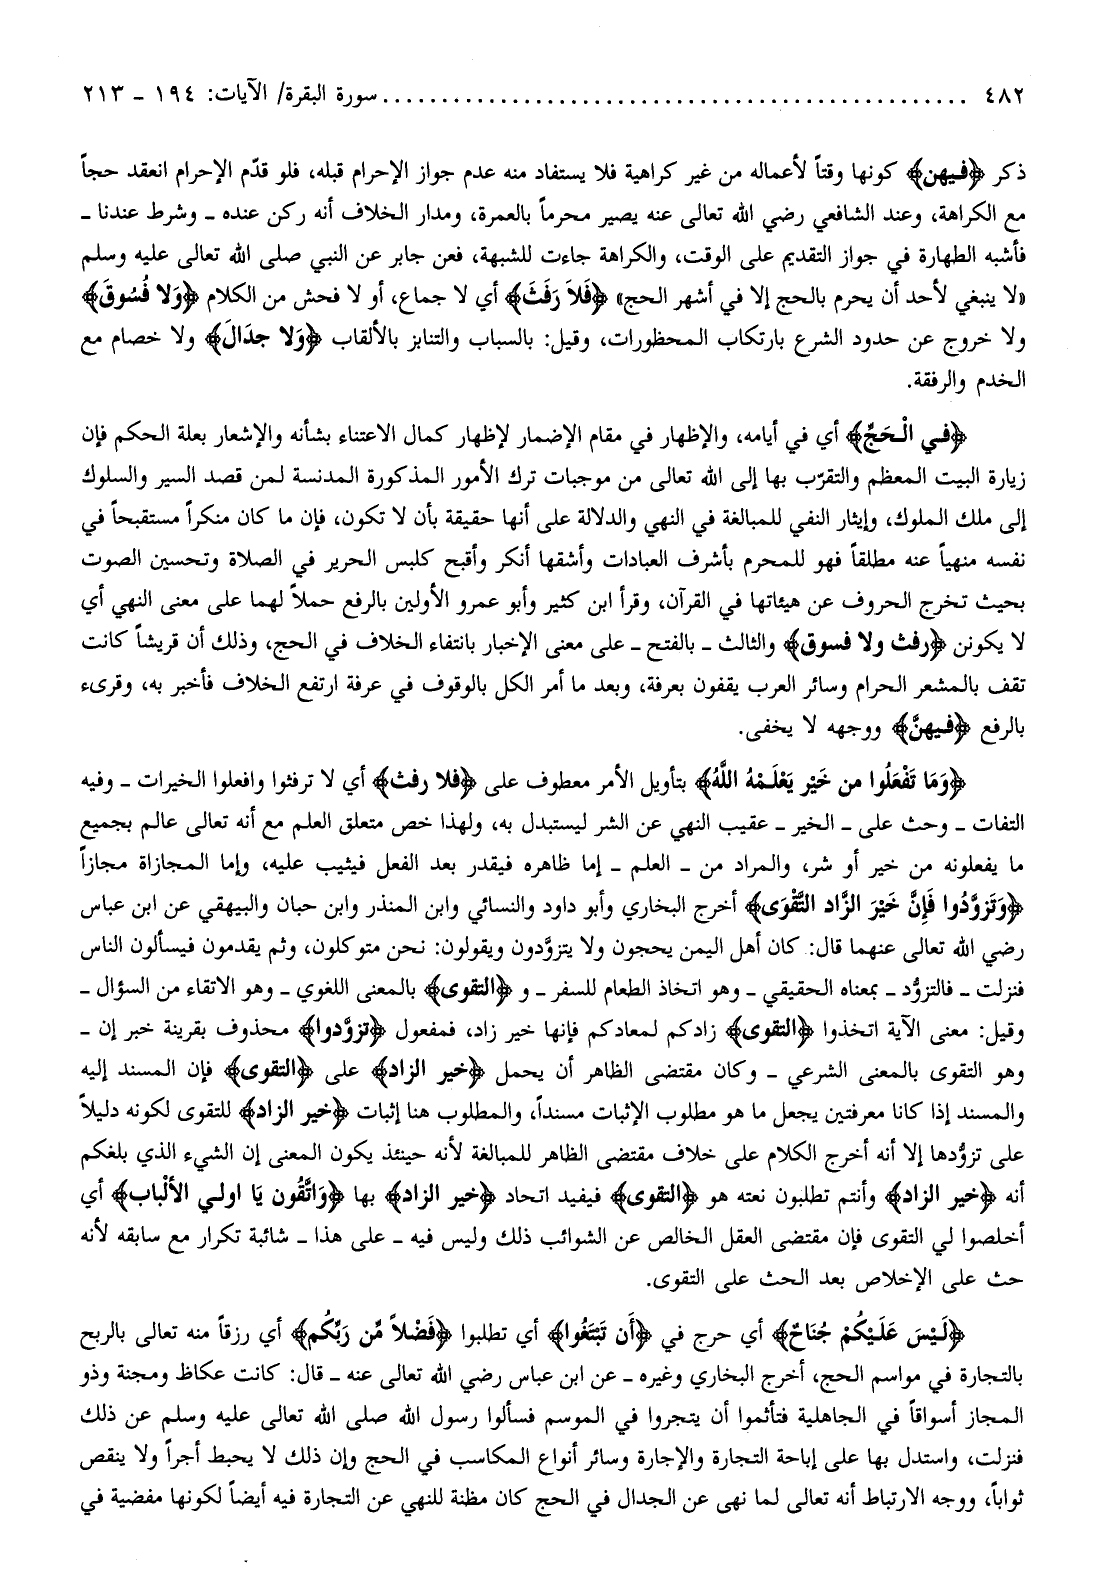 ٤٨٢ .................................................. سورة البقرة/ الآيات: ١٩٤ ـ ٢١٣
ذكر ﴿فيهن﴾ كونها وقتاً لأعماله من غير كراهية فلا يستفاد منه عدم جواز الإحرام قبله، فلو قدّم الإحرام انعقد حجاً
مع الكراهة، وعند الشافعي رضي الله تعالى عنه يصير محرماً بالعمرة، ومدار الخلاف أنه ركن عنده ـ وشرط عندنا ـ
فأشبه الطهارة في جواز التقديم على الوقت، والكراهة جاءت للشبهة، فعن جابر عن النبي صلى الله تعالى عليه وسلم
«لا ينبغي لأحد أن يحرم بالحج إلا في أشهر الحج» ﴿فَلاَ رَفَثَ﴾ أي لا جماع، أو لا فحش من الكلام ﴿وَلا فُسُوقَ﴾
ولا خروج عن حدود الشرع بارتكاب المحظورات، وقيل: بالسباب والتنابز بالألقاب ﴿وَلا جدَالَ﴾ ولا خصام مع
الخدم والرفقة.
﴿في الْحَجِّ﴾ أي في أيامه، والإظهار في مقام الإضمار لإظهار كمال الاعتناء بشأنه والإشعار بعلة الحكم فإن
زيارة البيت المعظم والتقرّب بها إلى الله تعالى من موجبات ترك الأمور المذكورة المدنسة لمن قصد السير والسلوك
إلى ملك الملوك، وإيثار النفي للمبالغة في النهي والدلالة على أنها حقيقة بأن لا تكون، فإن ما كان منكراً مستقبحاً في
نفسه منهياً عنه مطلقاً فهو للمحرم بأشرف العبادات وأشقها أنكر وأقبح كلبس الحرير في الصلاة وتحسين الصوت
بحيث تخرج الحروف عن هيئاتها في القرآن، وقرأ ابن كثير وأبو عمرو الأولين بالرفع حملاً لهما على معنى النهي أي
لا يكونن ﴿رفث ولا فسوق﴾ والثالث ـ بالفتح ـ على معنى الإخبار بانتفاء الخلاف في الحج، وذلك أن قريشاً كانت
تقف بالمشعر الحرام وسائر العرب يقفون بعرفة، وبعد ما أمر الكل بالوقوف في عرفة ارتفع الخلاف فأخبر به، وقرىء
بالرفع ﴿فيهنَّ﴾ ووجهه لا يخفى.
﴿وَمَا تَفْعَلُوا من خَيْر يَعْلَمْهُ اللَّهُ﴾ بتأويل الأمر معطوف على ﴿فلا رفث﴾ أي لا ترفثوا وافعلوا الخيرات ـ وفيه
التفات ـ وحث على ـ الخير ـ عقيب النهي عن الشر ليستبدل به، ولهذا خص متعلق العلم مع أنه تعالى عالم بجميع
ما يفعلونه من خير أو شر، والمراد من ـ العلم ـ إما ظاهره فيقدر بعد الفعل فيثيب عليه، وإما المجازاة مجازاً
﴿وَتَزوَّدُوا فَإنَّ خَيْرَ الزَّاد التَّقْوَى﴾ أخرج البخاري وأبو داود والنسائي وابن المنذر وابن حبان والبيهقي عن ابن عباس
رضي الله تعالى عنهما قال: كان أهل اليمن يحجون ولا يتزوَّدون ويقولون: نحن متوكلون، وثم يقدمون فيسألون الناس
فنزلت ـ فالتزوُّد ـ بمعناه الحقيقي ـ وهو اتخاذ الطعام للسفر ـ و ﴿التقوى﴾ بالمعنى اللغوي ـ وهو الاتقاء من السؤال ـ
وقيل: معنى الآية اتخذوا ﴿التقوى﴾ زادكم لمعادكم فإنها خير زاد، فمفعول ﴿تزوَّدوا﴾ محذوف بقرينة خبر إن ـ
وهو التقوى بالمعنى الشرعي ـ وكان مقتضى الظاهر أن يحمل ﴿خير الزاد﴾ على ﴿التقوى﴾ فإن المسند إليه
والمسند إذا كانا معرفتين يجعل ما هو مطلوب الإثبات مسنداً، والمطلوب هنا إثبات ﴿خير الزاد﴾ للتقوى لكونه دليلاً
على تزوُّدها إلا أنه أخرج الكلام على خلاف مقتضى الظاهر للمبالغة لأنه حينئذ يكون المعنى إن الشيء الذي بلغكم
أنه ﴿خير الزاد﴾ وأنتم تطلبون نعته هو ﴿التقوى﴾ فيفيد اتحاد ﴿خير الزاد﴾ بها ﴿وَاتَّقُون يَا اولي الألْباب﴾ أي
أخلصوا لي التقوى فإن مقتضى العقل الخالص عن الشوائب ذلك وليس فيه ـ على هذا ـ شائبة تكرار مع سابقه لأنه
حث على الإخلاص بعد الحث على التقوى.
﴿لَيْسَ عَلَيْكُمْ جُنَاحٌ﴾ أي حرج في ﴿أَن تَبْتَغُوا﴾ أي تطلبوا ﴿فَضْلاً مِّن رَبِّكُم﴾ أي رزقاً منه تعالى بالربح
بالتجارة في مواسم الحج، أخرج البخاري وغيره ـ عن ابن عباس رضي الله تعالى عنه ـ قال: كانت عكاظ ومجنة وذو
المجاز أسواقاً في الجاهلية فتأثموا أن يتجروا في الموسم فسألوا رسول الله صلى الله تعالى عليه وسلم عن ذلك
فنزلت، واستدل بها على إباحة التجارة والإجارة وسائر أنواع المكاسب في الحج وإن ذلك لا يحبط أجراً ولا ينقص
ثواباً، ووجه الارتباط أنه تعالى لما نهى عن الجدال في الحج كان مظنة للنهي عن التجارة فيه أيضاً لكونها مفضية في